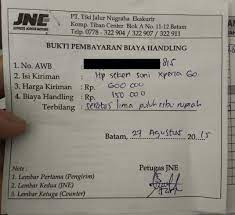 JNE
EXPRESS ACROSS NATIONS
PT. Tiki Jalur Nugraha Ekakurir
Komp. Tiban Center Blok A No. 11-12 Batam
Telp. 0778 - 322 904 / 322 907 / 322 911
BUKTI PEMBAYARAN BIAYA HANDLING
1. No. AWB : 815
2. Isi Kiriman : Hp seken soni xperia Go
3. Harga Kiriman : Rp 600 000
4. Biaya Handling : Rp 150 000
Terbilang : seratus lima puluh ribu rupiah
Batam, 27 Agustus 2015
Petugas JNE
1. Lembar Pertama (Pengirim)
2. Lembar Kedua (JNE)
3. Lembar Ketuga (Counter)